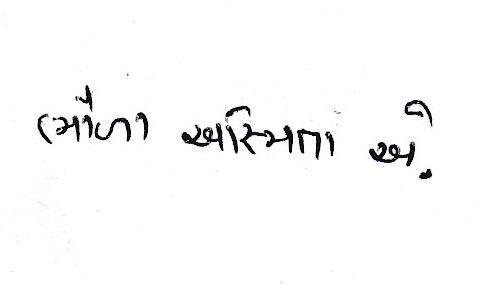 ભોળા અસ્મિતા